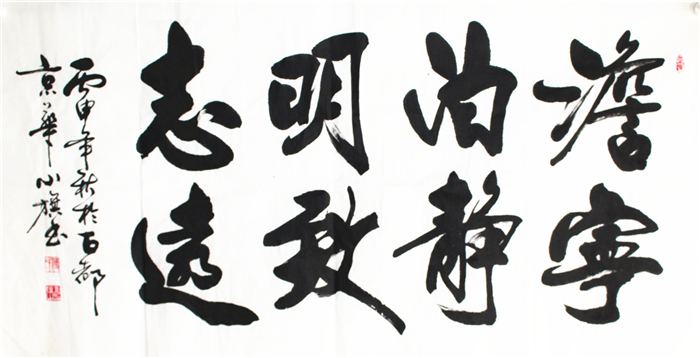 澹泊明志
寧静致遠
丙申年秋於首都
京華小旗书